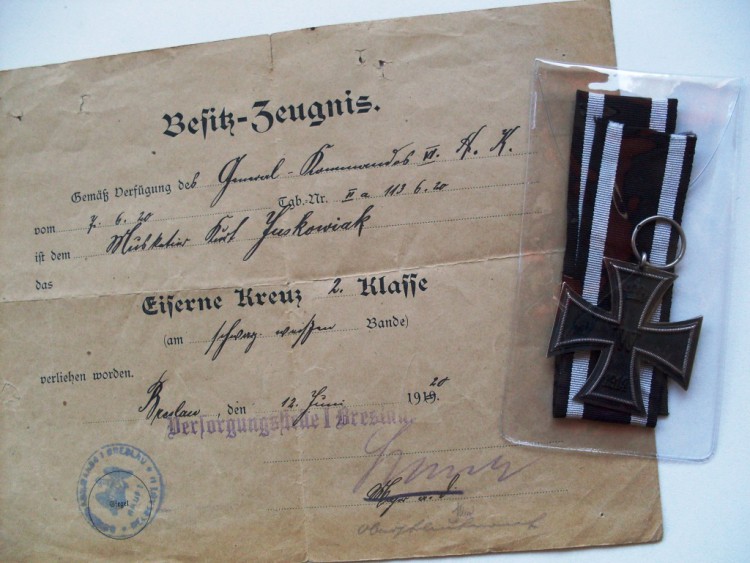 Besitz-Zeugnis.
Gemäß Verfügung des General-Kommandos VI. A. K.
vom 7. 6. 20 Tgb.-Nr. II a 113 6. 20
ist dem Musketier Kurt Juskowiak
das
Eiserne Kreuz 2. Klasse
(am schwarz-weißen Bande)
verliehen worden.
Breslau, den 12. Juni 1919. 20
Versorgungsstelle I Breslau.
Siegel
Major a. D.